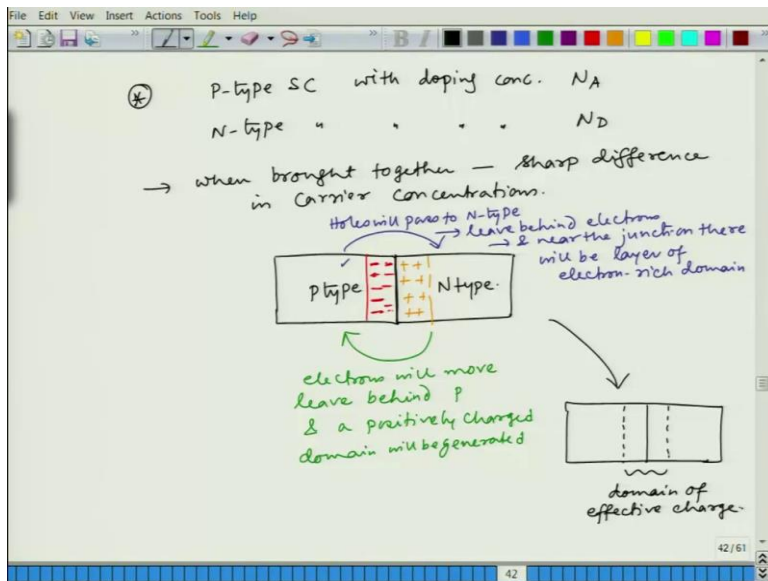 File Edit View Insert Actions Tools Help
B I
* P-type SC with doping conc. NA
N-type " " " " ND
→ when brought together — sharp difference
in carrier concentrations.
Holes will pass to N-type
→ leave behind electrons
→ & near the junction there
will be layer of
electron-rich domain
P type -- ++ N type.
electrons will move
leave behind P
& a positively charged
domain will be generated
domain of
effective charge.
42/61
42